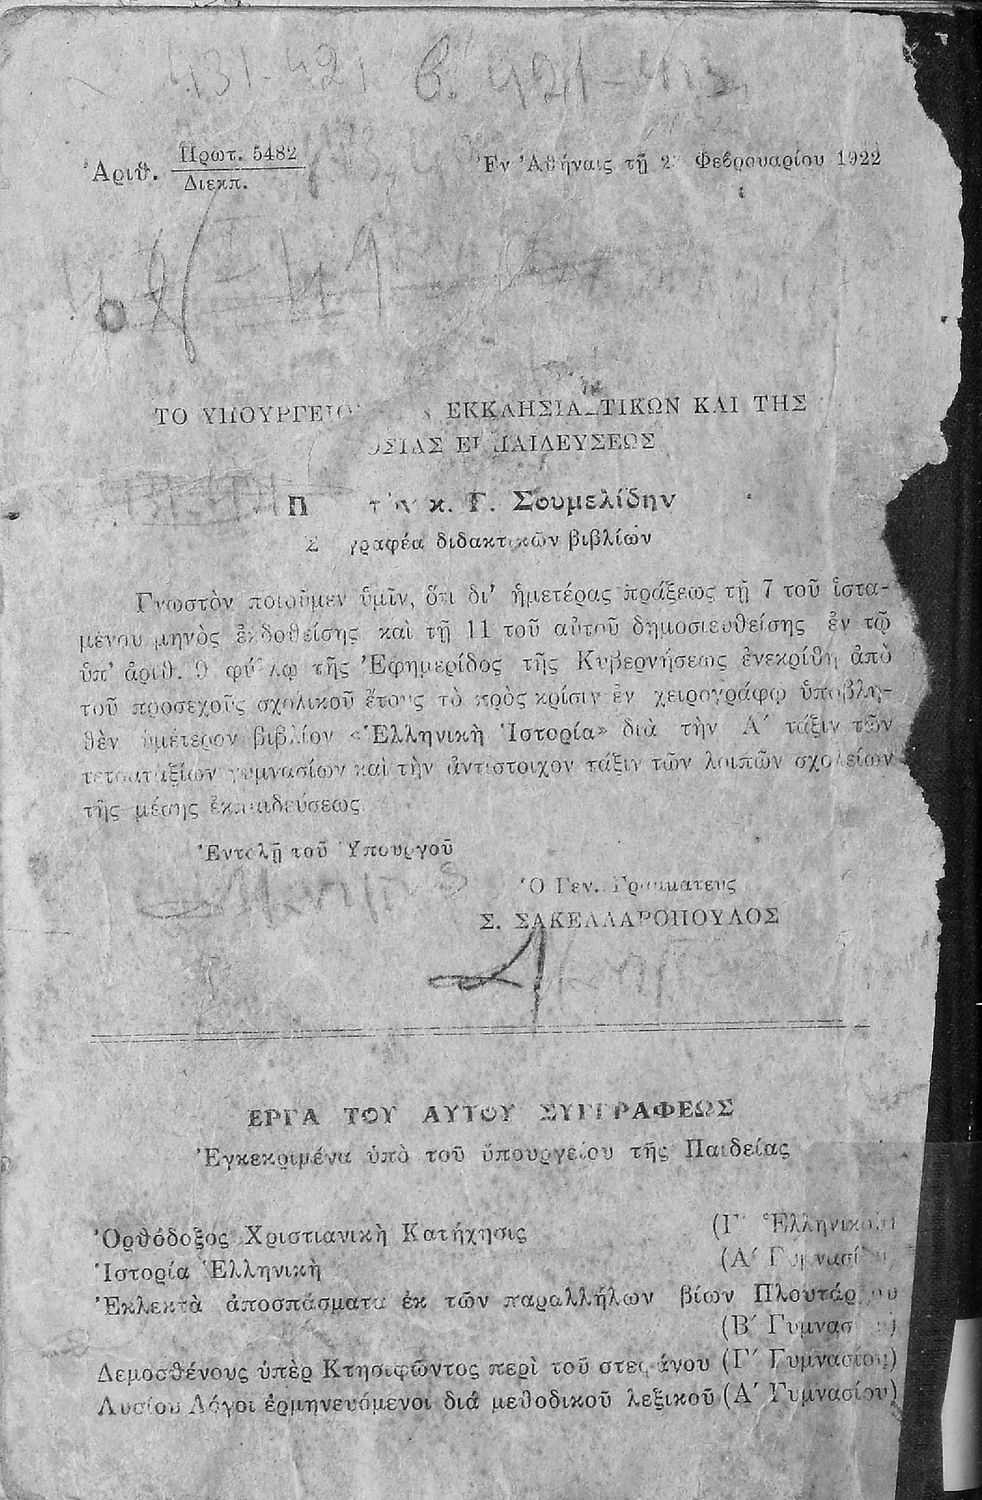 431-421 β. 421-413
Ἀριθ. Πρωτ. 5482
Διεκπ.
Ἐν Ἀθήναις τῇ 2 Φεβρουαρίου 1922
ΤΟ ΥΠΟΥΡΓΕΙΟ ΕΚΚΛΗΣΙΑΣΤΙΚΩΝ ΚΑΙ ΤΗΣ
ΟΣΙΑΣ ΕΚΠΑΙΔΕΥΣΕΩΣ
Π τὸν κ. Γ. Σουμελίδην
Σ γραφέα διδακτικῶν βιβλίων
Γνωστὸν ποιοῦμεν ὑμῖν, ὅτι δι' ἡμετέρας πράξεως τῇ 7 τοῦ ἱστα-
μένου μηνὸς ἐκδοθείσης καὶ τῇ 11 τοῦ αὐτοῦ δημοσιευθείσης ἐν τῷ
ὑπ' ἀριθ. 9 φύλλῳ τῆς Ἐφημερίδος τῆς Κυβερνήσεως ἐνεκρίθη ἀπὸ
τοῦ προσεχοῦς σχολικοῦ ἔτους τὸ πρὸς κρίσιν ἐν χειρογράφῳ ὑποβλη-
θὲν ὑμέτερον βιβλίον «Ἑλληνικὴ Ἱστορία» διὰ τὴν Α΄ τάξιν τῶν
τετραταξίων γυμνασίων καὶ τὴν ἀντίστοιχον τάξιν τῶν λοιπῶν σχολείων
τῆς μέσης ἐκπαιδεύσεως
Ἐντολῇ τοῦ Ὑπουργοῦ
Ὁ Γεν. Γραμματεὺς
Σ. ΣΑΚΕΛΛΑΡΟΠΟΥΛΟΣ
ΕΡΓΑ ΤΟΥ ΑΥΤΟΥ ΣΥΓΓΡΑΦΕΩΣ
Ἐγκεκριμένα ὑπὸ τοῦ ὑπουργείου τῆς Παιδείας
Ὀρθόδοξος Χριστιανικὴ Κατήχησις (Γ΄ Ἑλληνικοῦ)
Ἱστορία Ἑλληνικὴ (Α΄ Γυμνασίου)
Ἐκλεκτὰ ἀποσπάσματα ἐκ τῶν παραλλήλων βίων Πλουτάρχου
(Β΄ Γυμνασίου)
Δεμοσθένους ὑπὲρ Κτησιφῶντος περὶ τοῦ στεφάνου (Γ΄ Γυμνασίου)
Λυσίου Λόγοι ἑρμηνευόμενοι διὰ μεθοδικοῦ λεξικοῦ (Α΄ Γυμνασίου)